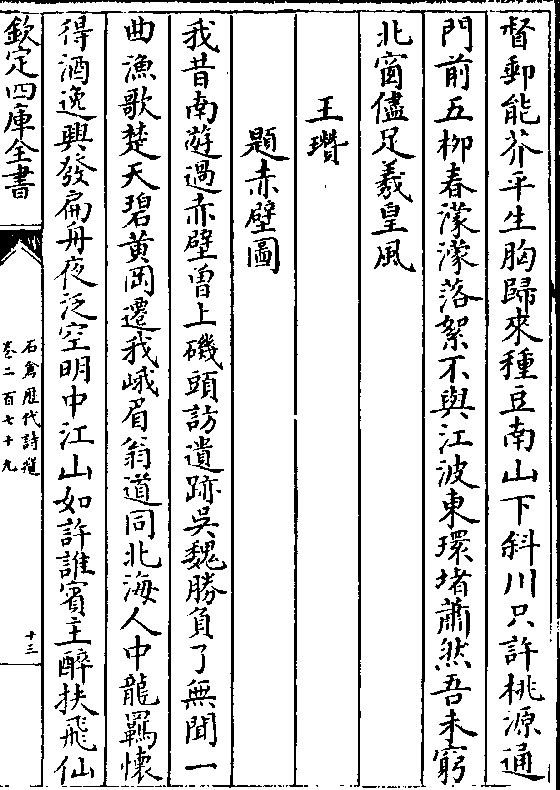 督郵能芥平生胸歸來種豆南山下斜川只許桃源通
門前五柳春濛濛落絮不與江波東環堵蕭然吾未窮
北窗儘足羲皇風
王瓚
題赤壁圖
我昔南遊過赤壁曽上磯頭訪遺跡吳魏勝負了無聞一
曲漁歌楚天碧黃岡遷我峨眉翁道同北海人中龍羈懷
得酒逸興發扁舟夜泛空明中江山如許誰賓主醉扶飛仙
欽定四庫全書
石倉歷代詩選
卷二百七十九
十三